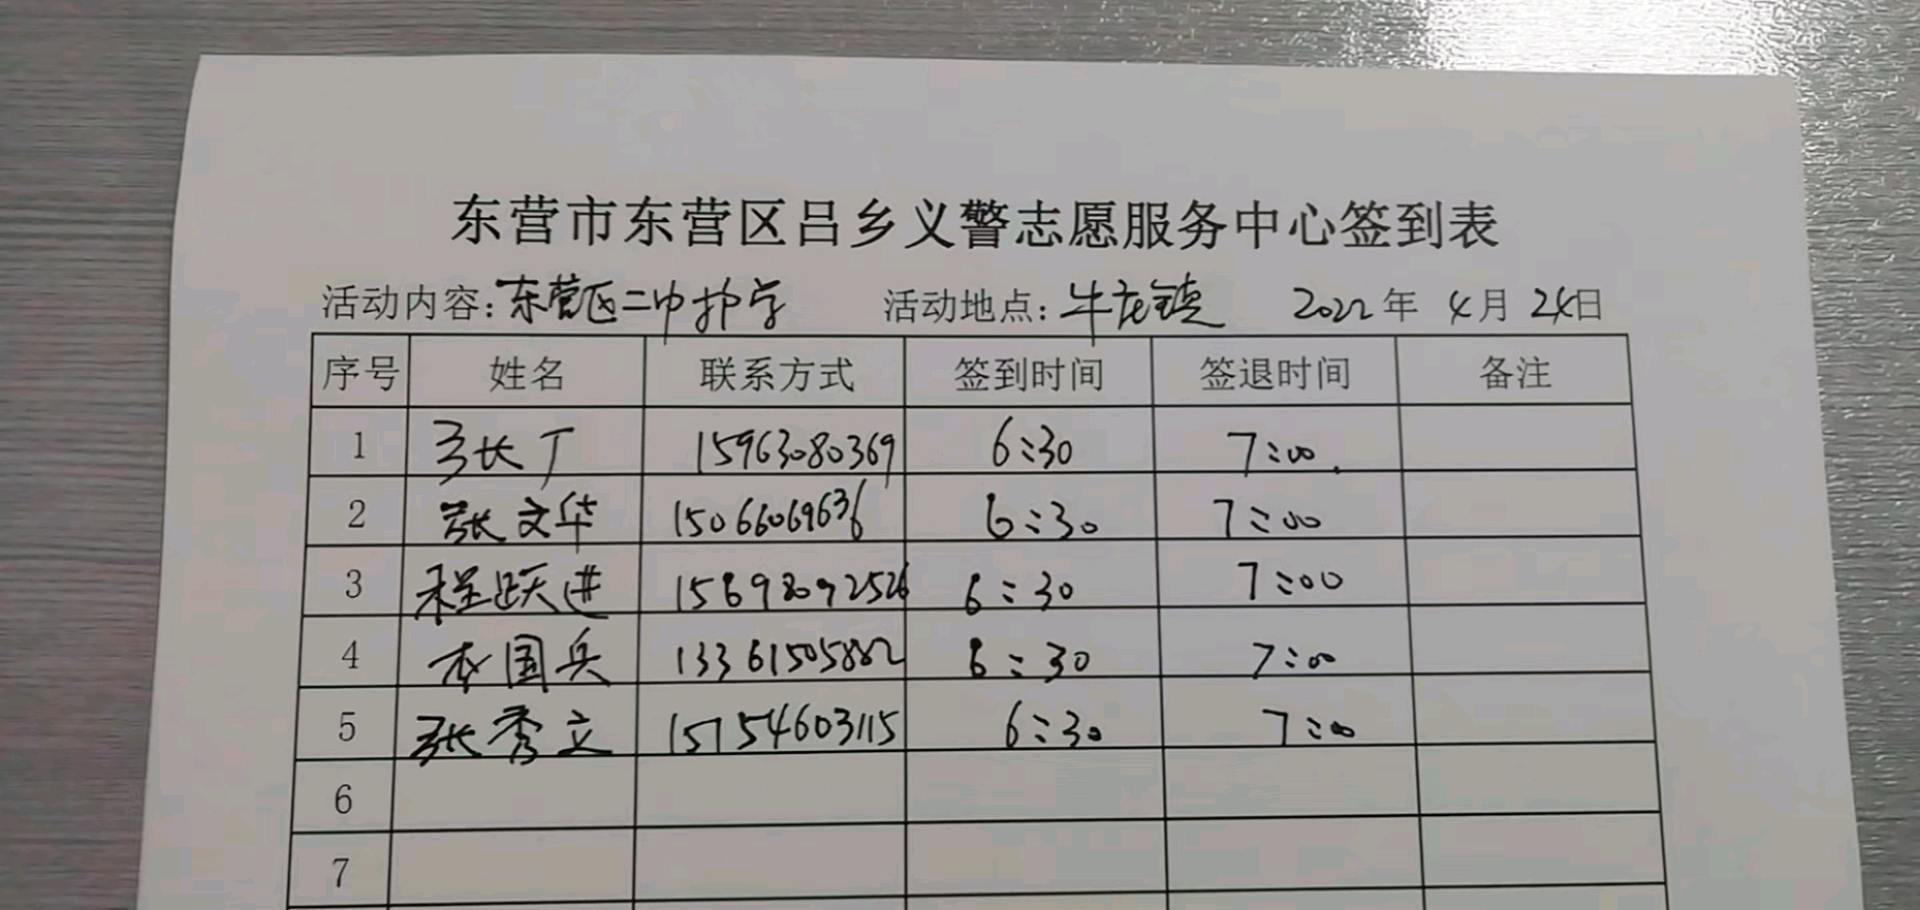 东营市东营区吕乡义警志愿服务中心签到表
活动内容：东营区二中护学 活动地点：牛庄镇 2022年 4月 24日
序号 姓名 联系方式 签到时间 签退时间 备注
1 15963080369 6:30 7:00
2 张文华 15066069636 6:30 7:00
3 程跃进 15698092526 6:30 7:00
4 国兵 13361505882 6:30 7:00
5 张秀立 15754603115 6:30 7:00
6
7